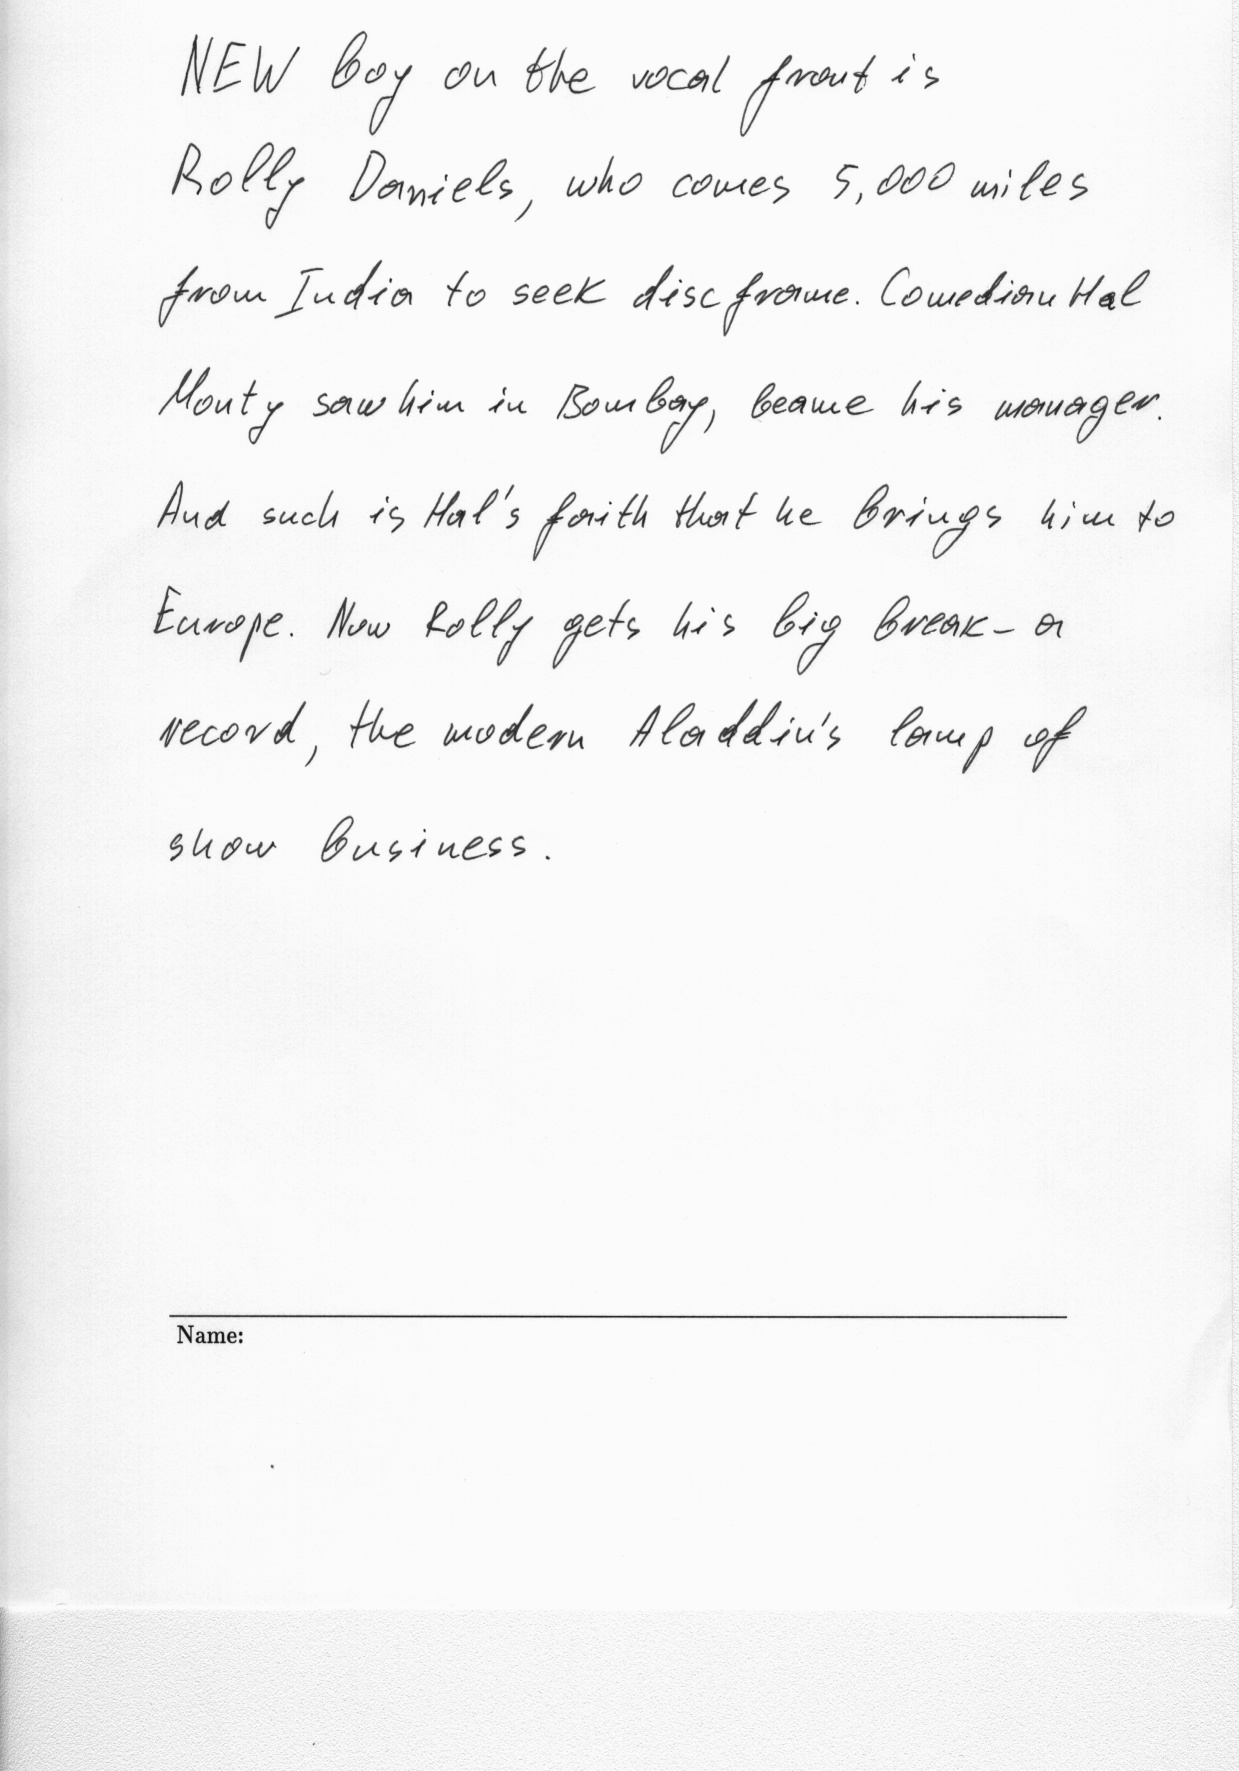 NEW boy on the vocal front is
Rolly Daniels, who comes 5,000 miles
from India to seek disc frame. Comedian Hal
Monty saw him in Bombay, beame his manager.
And such is Hal's faith that he brings him to
Europe. Now Rolly gets his big break - a
record, the modern Aladdin's lamp of
show business.
Name: